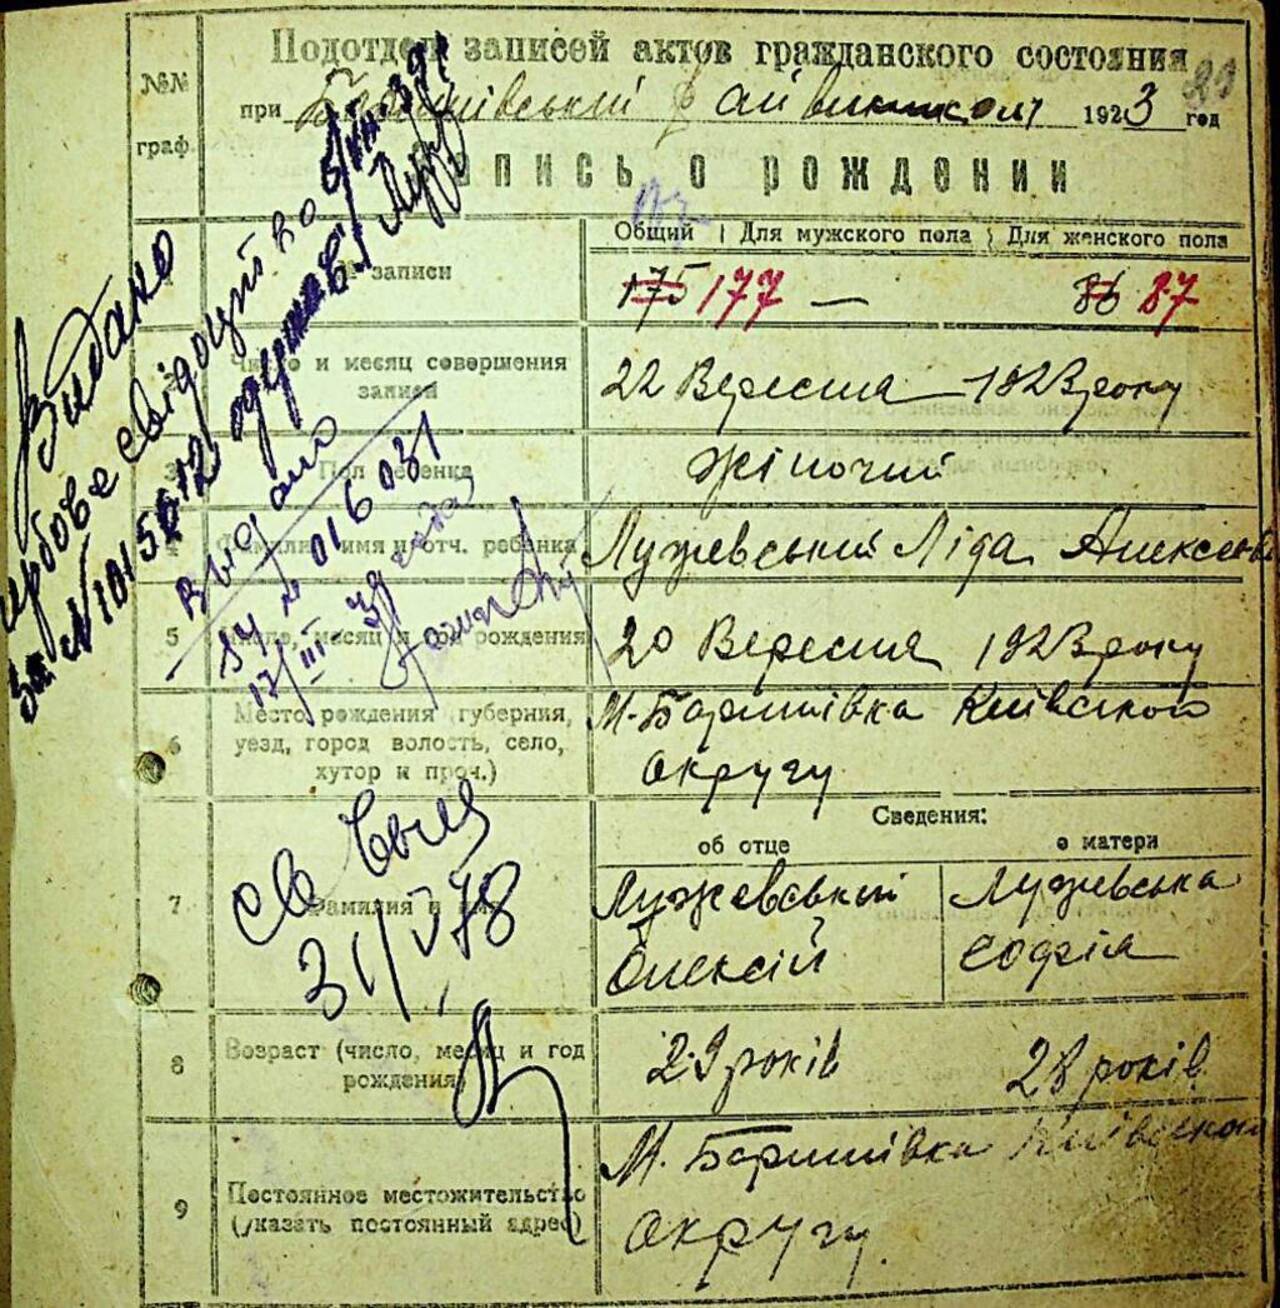 Подотдел записей актов гражданского состояния
при Баришівський Райвиконком 1923 год
№№ граф.
Запись о рождении
Общий | Для мужского пола | Для женского пола
№ записи 175 177 — 86 87
2 Число и месяц совершения записи 22 Вересня 1923 року
3 Пол ребенка жіночий
4 Фамилия, имя и отч. ребенка Лужевський Ліда Алексеев
5 Число, месяц и год рождения 20 Вересня 1923 року
6 Место рождения (губерния, М. Баришівка Київской
уезд, город волость, село, округу
хутор и проч.)
Сведения:
об отце о матери
7 Фамилия и имя Лужевський Лужевська
Олексій Софія
8 Возраст (число, месяц и год рождения) 29 років 28 років
9 Постоянное местожительство М. Баришівка Київской
(указать постоянный адрес) округу
Видано
свідоцтво
за №
выдано
016031
17/III
31/V 78